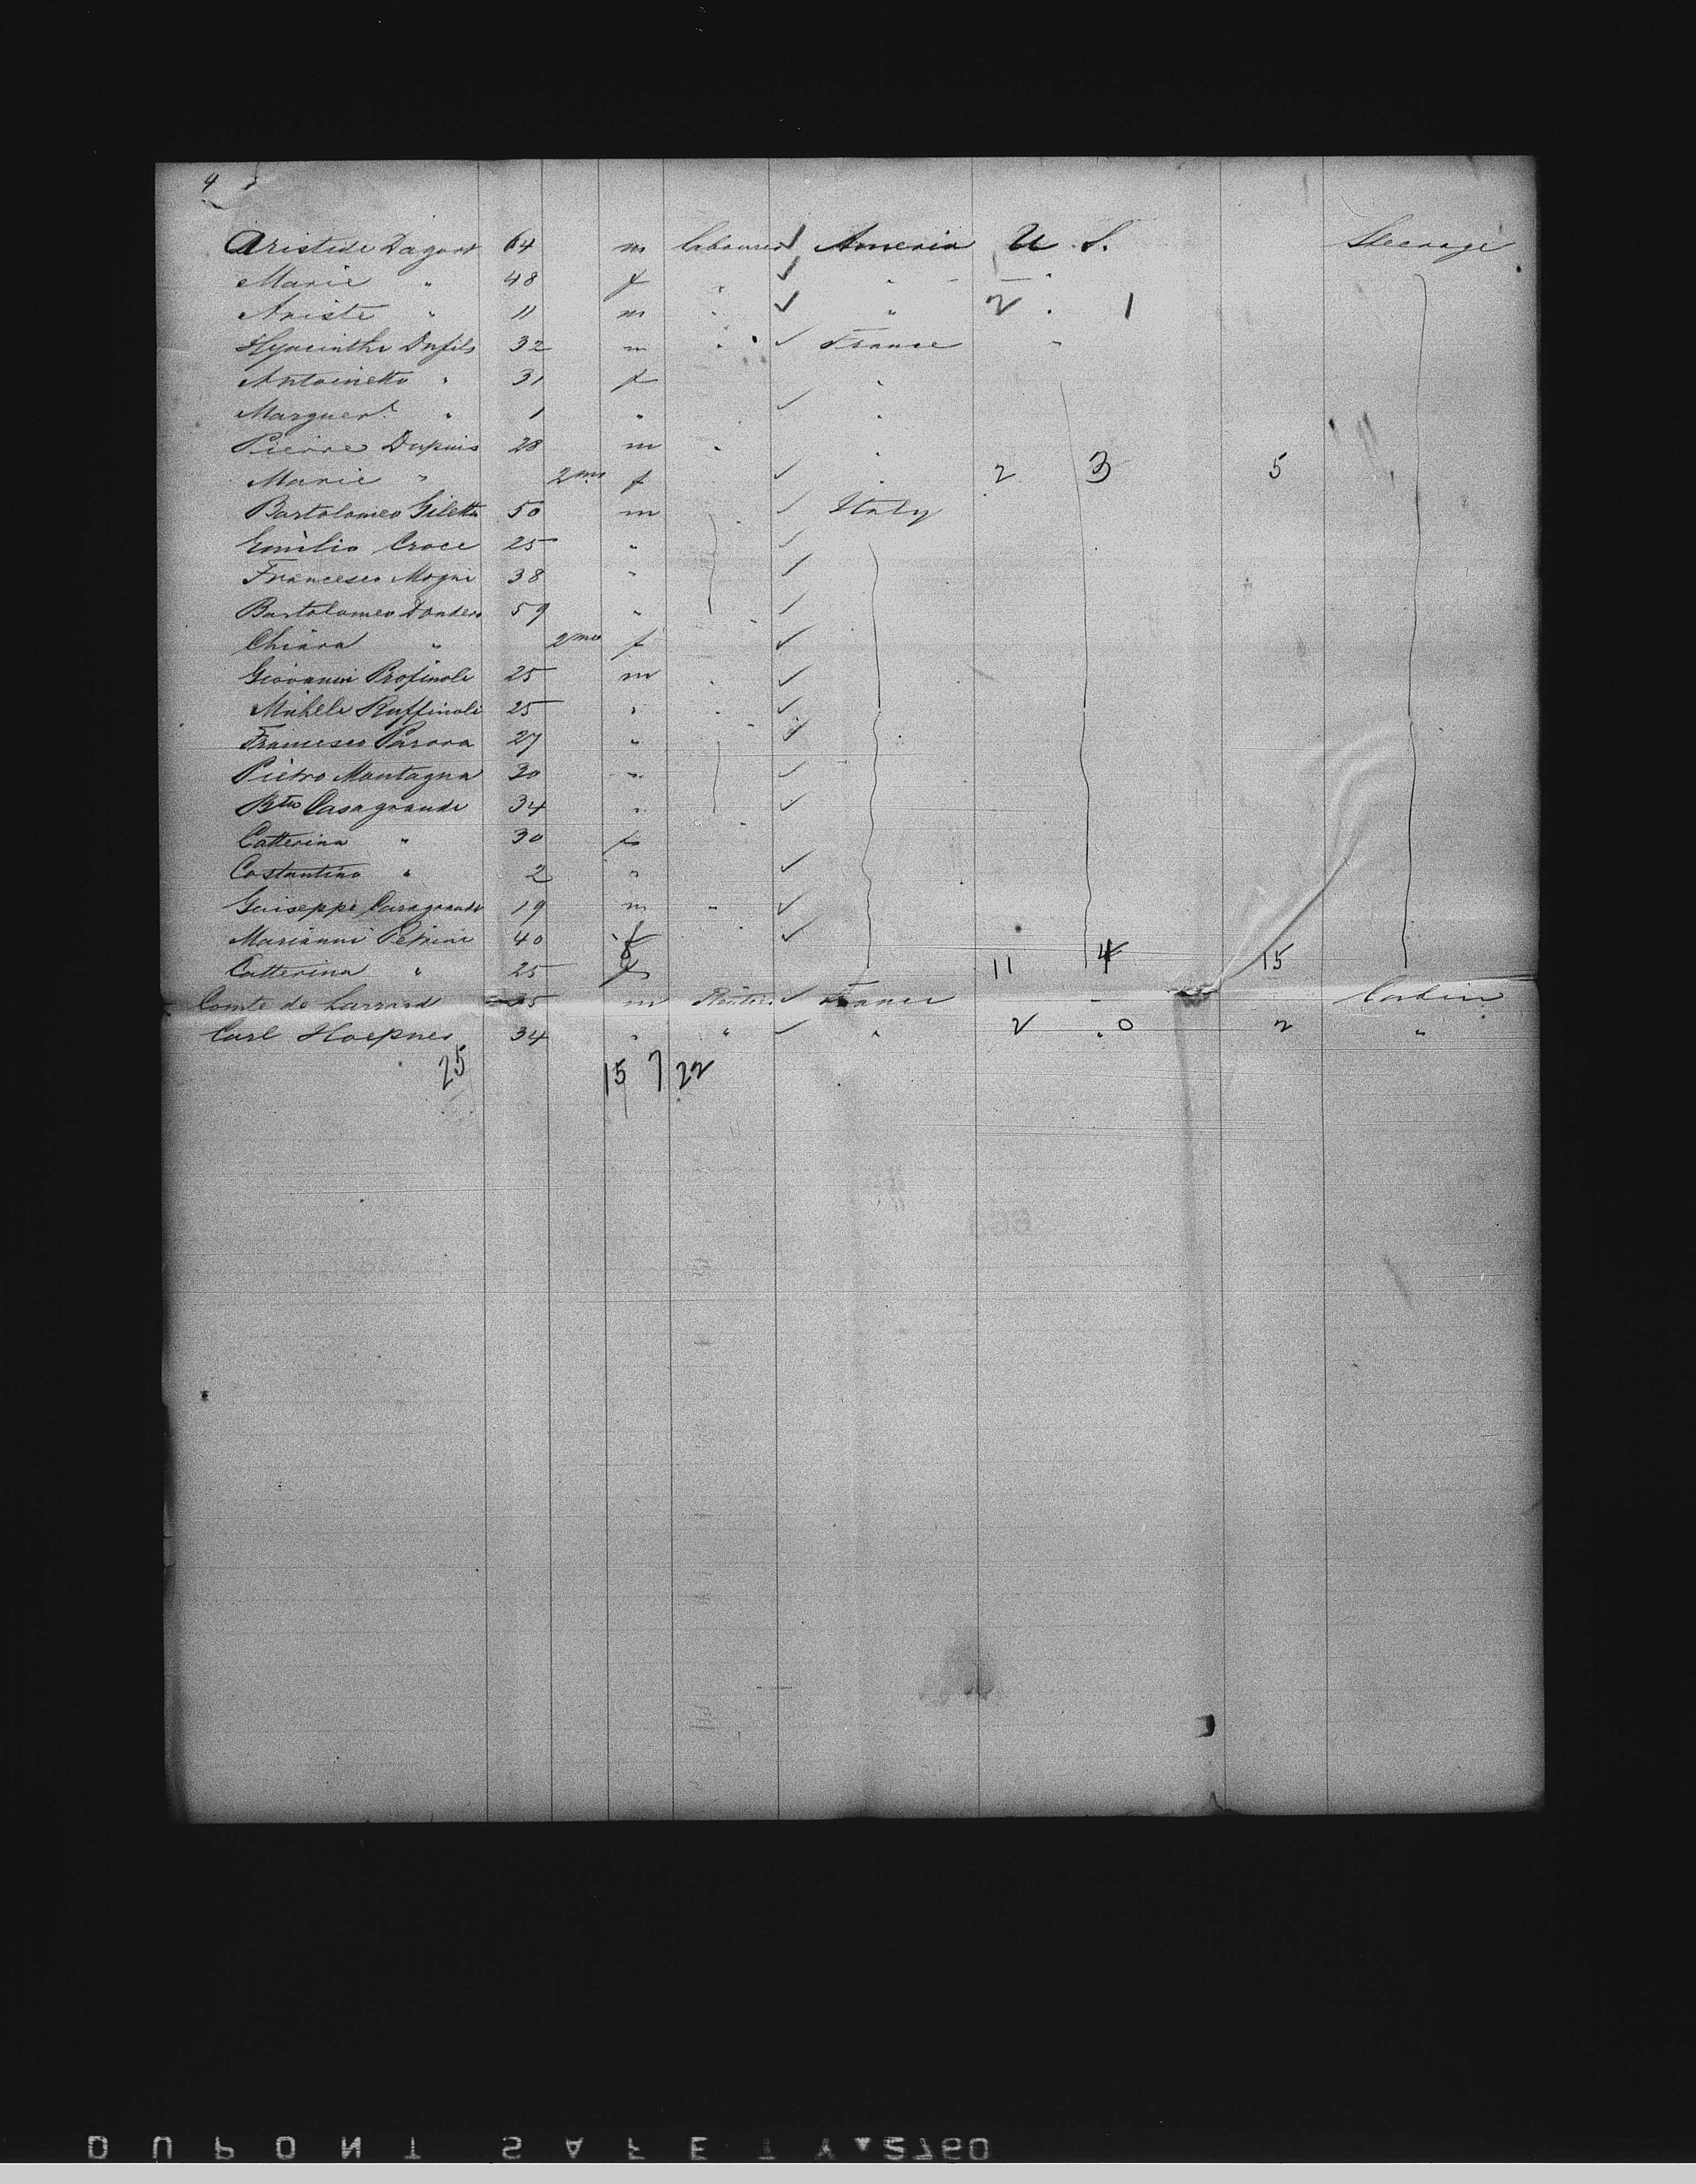 4
Aristide Dagort 64 m labourer ✓ America U. S. Steerage
Marie " 48 f " ✓ " - "
Ariste " 11 m " ✓ " 2 . 1
Hyacinthe Dufils 32 m " ✓ France "
Antoinette " 31 f "
Marguert. " 1 " ✓ "
Pierre Dupuis 28 m " "
Marie " 2 mos f ✓ " 2 3 5
Bartolomeo Giletta 50 m " ✓ Italy
Emilio Croce 25 " ✓
Francesco Mogni 38 " ✓
Bartolomeo Dondero 59 " ✓
Chiara " 2 mos f ✓
Giovanni 25 m " ✓
Michele Ruffinoli 25 " " ✓
Francesco 27 " ✓
Pietro Montagna 30 " ✓
Bteo Casagrande 34 " ✓
Catterina " 30 f
Costantino " 2 " ✓
Guiseppe Casagrande 19 m " ✓
Marianni Petrini 40 f ✓
Catterina " 25 f 11 4 15
Comte de 35 m ✓ France - Cabin
Carl Hoepner 34 " " ✓ " 2 . 0 2 "
25 15 7 22
DUPONT SAFETY 2760